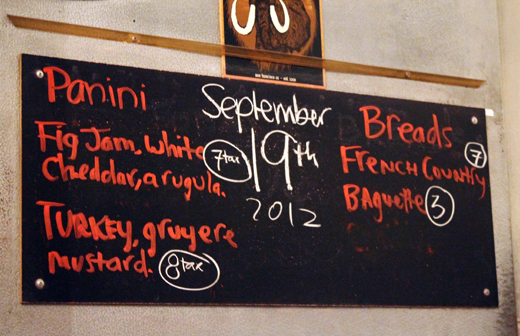 Panini
Fig Jam, white
Cheddar, arugula.
7 tax
TURKEY, gruyere
mustard.
8 tax
September
19th
2012
Breads
7
FRENCH COUNTRY
BAguette 3